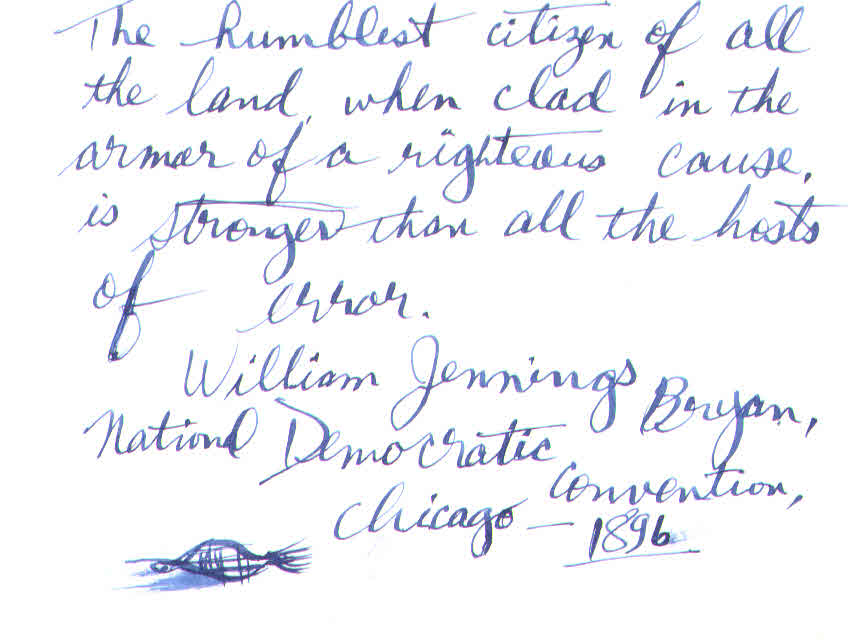 The humblest citizen of all
the land, when clad in the
armor of a righteous cause,
is stronger than all the hosts
of error.
William Jennings Bryan,
National Democratic
Convention,
Chicago — 1896